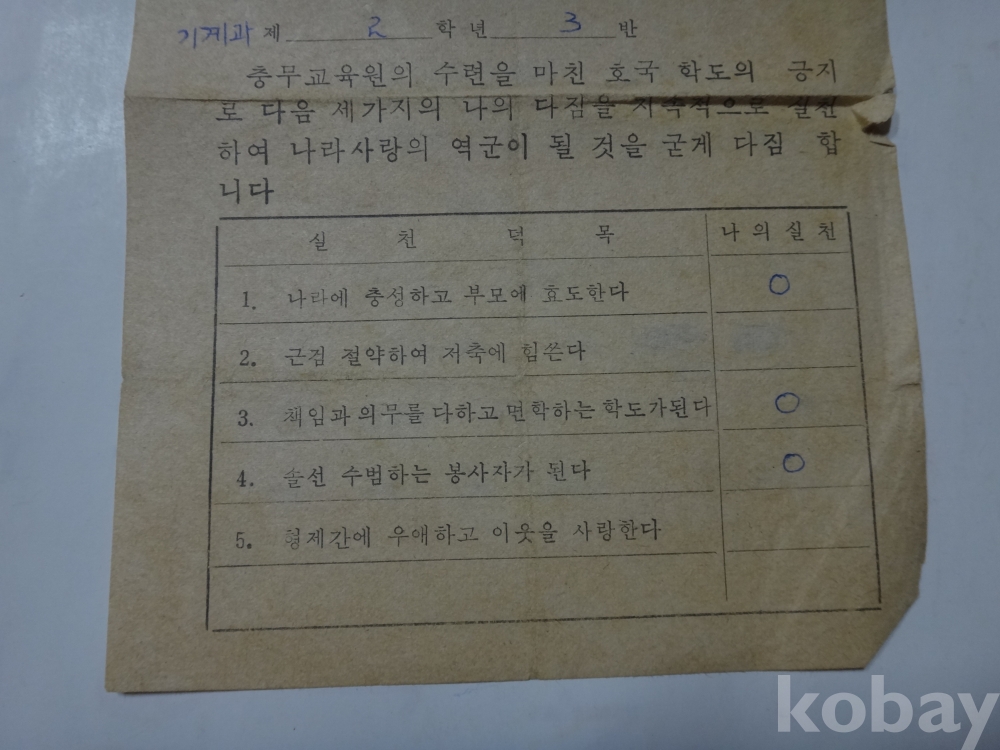 기계과 제 2 학년 3 반
충무교육원의 수련을 마친 호국 학도의 긍지
로 다음 세가지의 나의 다짐을 지속적으로 실천
하여 나라사랑의 역군이 될 것을 굳게 다짐 합
니다
실 천 덕 목 나의실천
1. 나라에 충성하고 부모에 효도한다 O
2. 근검 절약하여 저축에 힘쓴다
3. 책임과 의무를 다하고 면학하는 학도가된다 O
4. 솔선 수범하는 봉사자가 된다 O
5. 형제간에 우애하고 이웃을 사랑한다
kobay